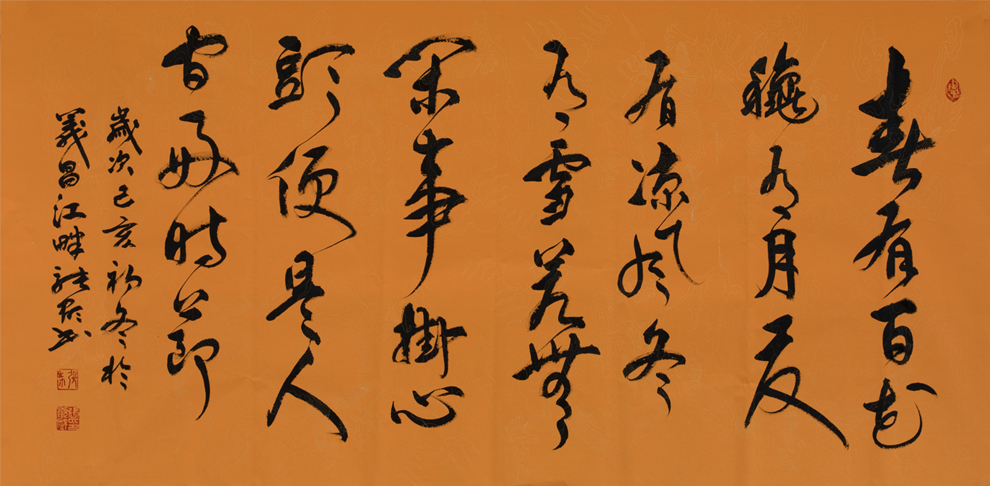 春有百花
龝有月夏
有涼風冬
有雪若無
閑事掛心
頭便是人
間好時節
歲次己亥初冬於
義昌江畔書